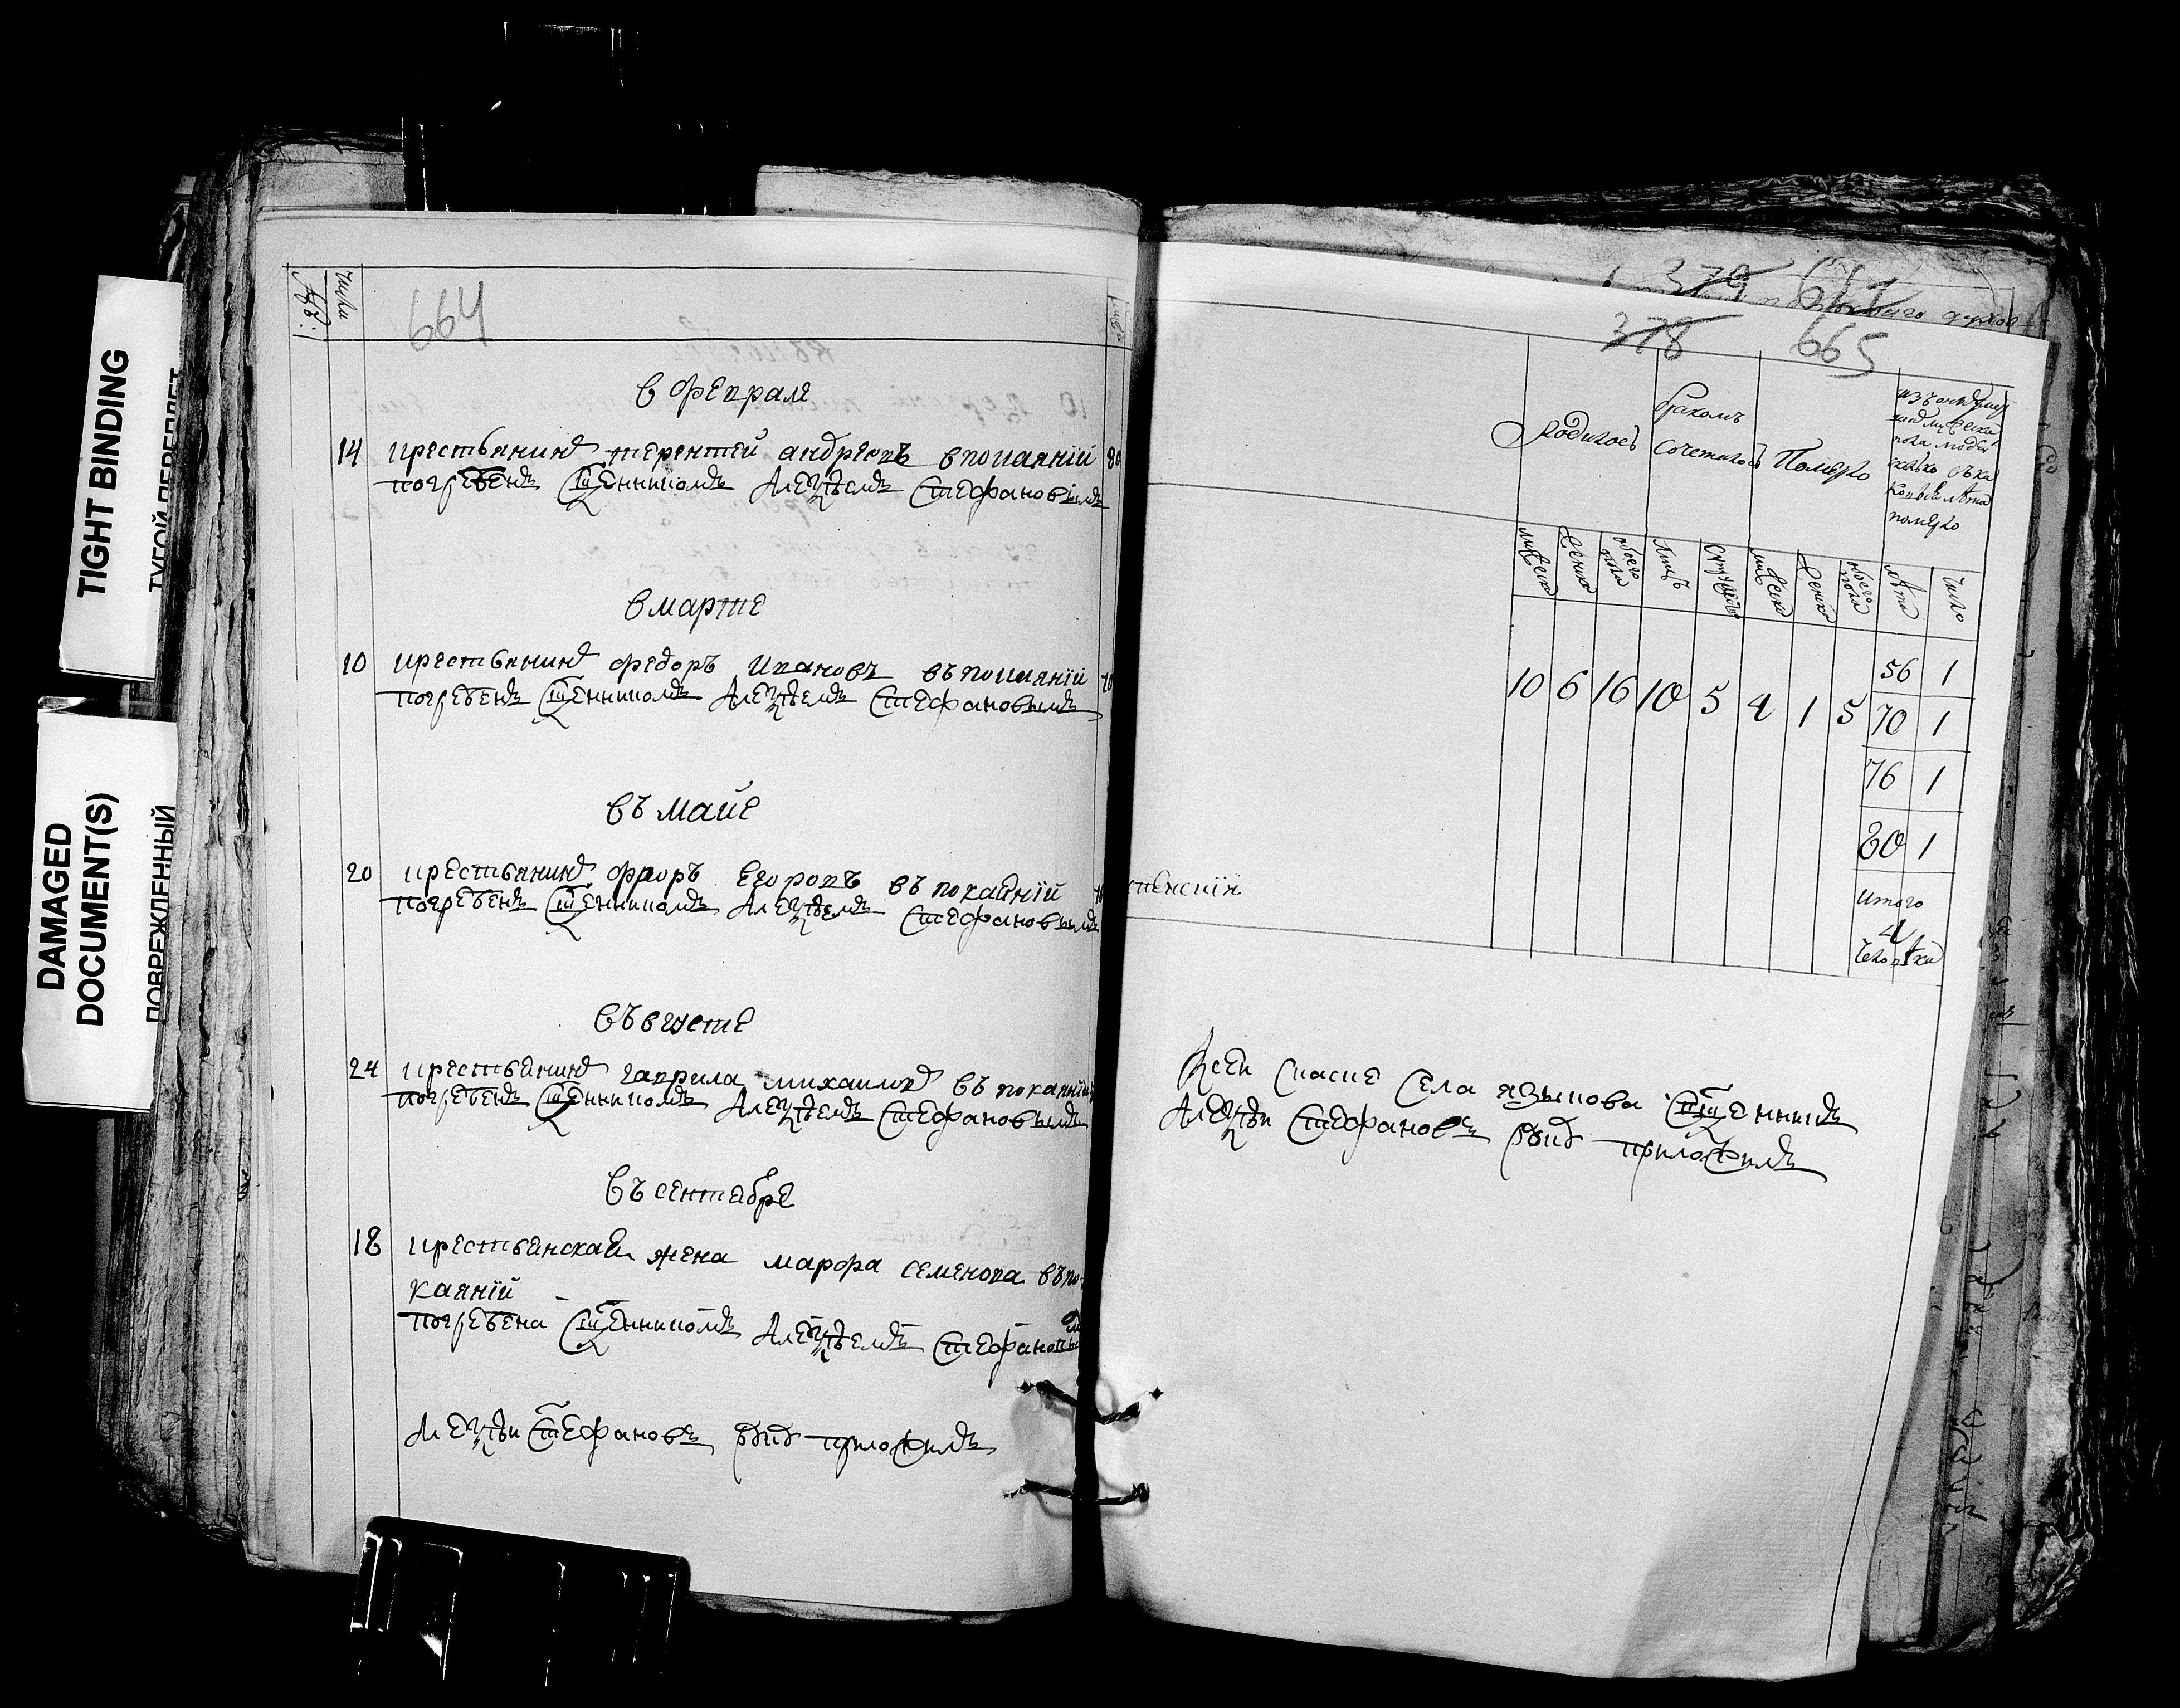 TIGHT BINDING
ТУГОЙ ПЕРЕПЛЕТ
DAMAGED DOCUMENT(S)
ПОВРЕЖДЕННЫЙ
Числа
664
Лѣта
в феврале
14 крестьянинъ терентей андреевъ впокаянiй 80
погребенъ сщенникомъ Алеѯѣемъ Стефановымъ
в марте
10 крестьянинъ федоръ Ивановъ въ покаянiй 70
погребенъ сщенникомъ Алеѯѣемъ Стефановымъ
въ маие
20 крестьянинъ фроръ Егоровъ въ покаянiй
погребенъ сщенникомъ Алеѯѣемъ Стефановымъ
въ вгусте
24 крестьянинъ гаврила михаиловъ въ покаянiй
погребенъ сщенникомъ Алеѯѣемъ Стефановымъ
въ сентебре
18 крестьянская жена марфа семенова въ по
каянiй
погребена сщенникомъ Алеѯѣемъ Стефановым
Алеѯѣи Стефановъ руку приложилъ
379
378 665
родилось
бракомъ сочеталось
Померло
померло
мужеска женска обоего пола
лицъ супружествъ
мужеска женска обоего пола
лѣта число
10 6 16 10 5 4 1 5
56 1
70 1
76 1
80 1
итого
4
человѣка
Села языкова сщенникъ
Алеѯѣи Стефановъ руку приложилъ